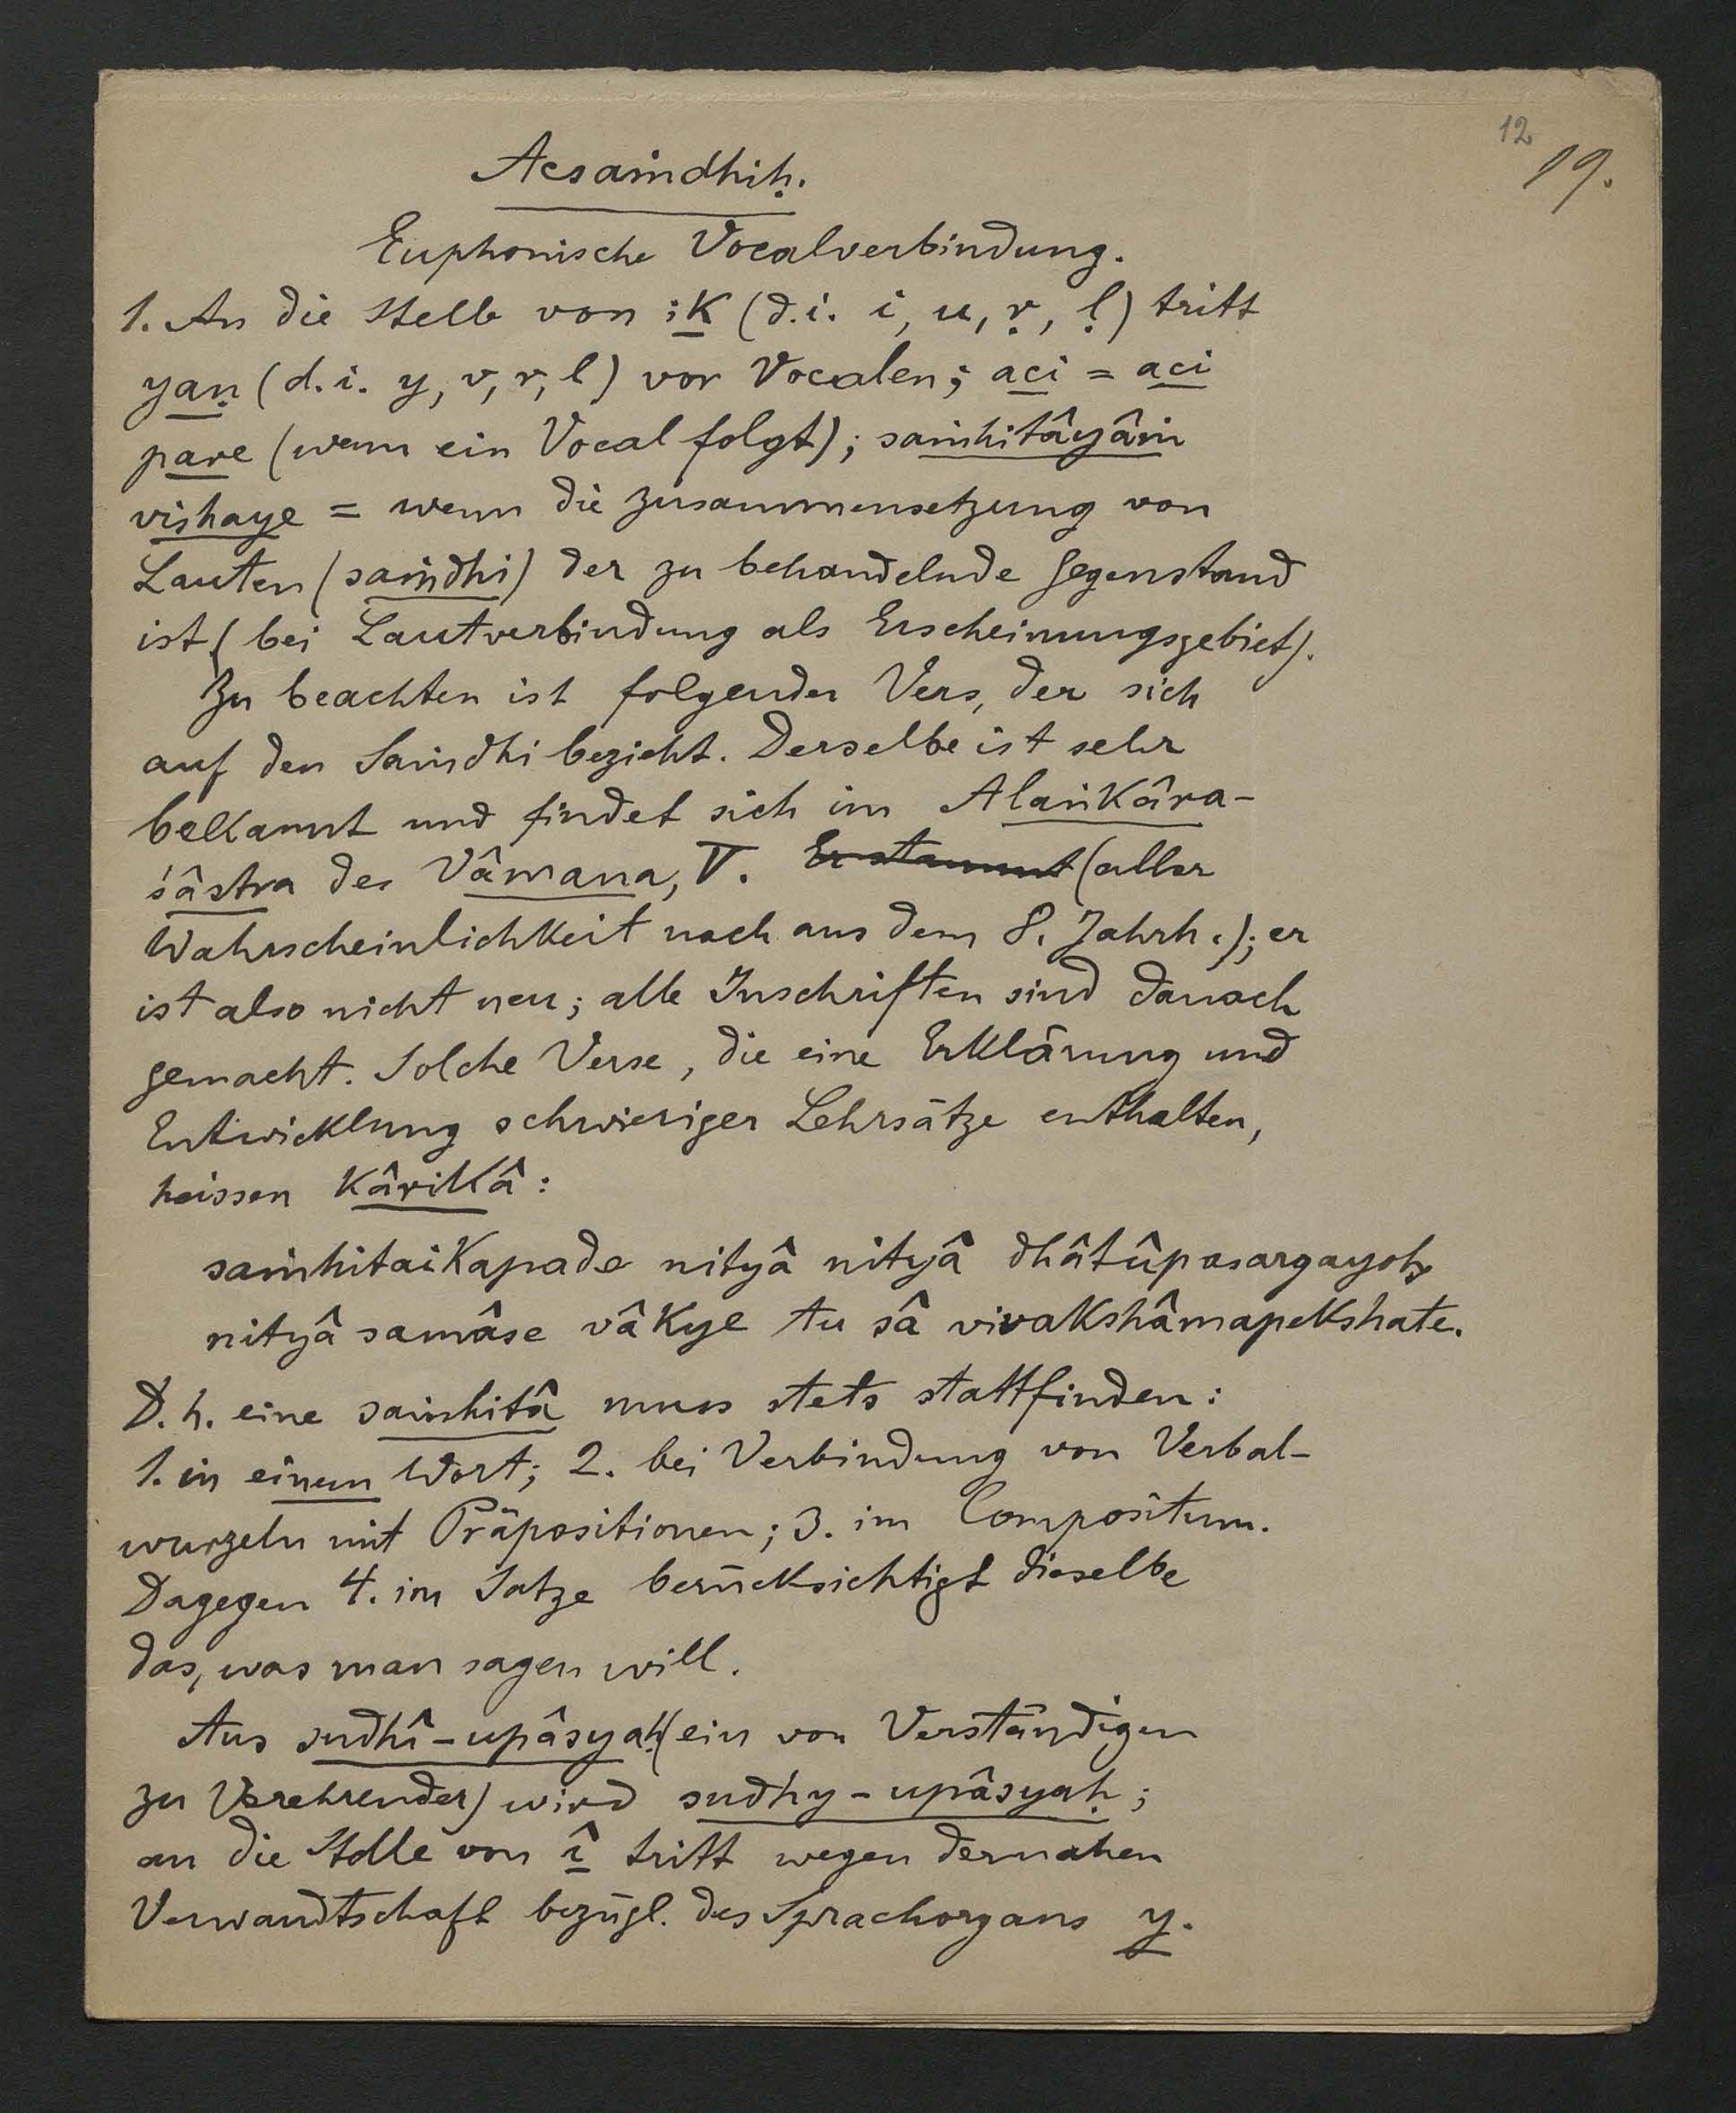 12
19.
Acsaṁdhiḥ.
Euphonische Vocalverbindung.
1. An die Stelle von iK (d.i. i, u, ṛ, ḷ) tritt
yaṇ (d.i. y, v, r, l) vor Vocalen; aci = aci
pare (wenn ein Vocal folgt); saṁhitâyâṁ
vishaye = wenn die Zusammensetzung von
Lauten (saṁdhi) der zu behandelnde Gegenstand
ist (bei Lautverbindung als Erscheinungsgebiet).
Zu beachten ist folgender Vers, der sich
auf den Saṁdhi bezieht. Derselbe ist sehr
bekannt und findet sich im Alaṅkâra-
śâstra des Vâmana, V. Er stammt (aller
Wahrscheinlichkeit nach aus dem 8. Jahrh.); er
ist also nicht neu; alle Inschriften sind danach
gemacht. Solche Verse, die eine Erklärung und
Entwicklung schwieriger Lehrsätze enthalten,
heissen Kârikâ:
saṁhitaikapade nityâ nityâ dhâtûpasargayoḥ
nityâ samâse vâkye tu sâ vivakshâmapekshate.
D.h. eine saṁhitâ muss stets stattfinden:
1. in einem Wort; 2. bei Verbindung von Verbal-
wurzeln mit Präpositionen; 3. im Compositum.
Dagegen 4. im Satze berücksichtigt dieselbe
das, was man sagen will.
Aus sudhî-upâsyaḥ (ein von Verständigen
zu Verehrender) wird sudhy-upâsyaḥ;
an die Stelle von î tritt wegen der nahen
Verwandtschaft bezügl. des Sprachorgans y.